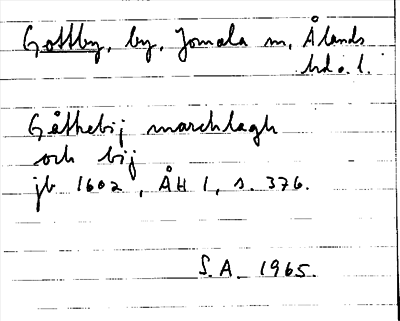 Gottby, by, Jomala sn, Ålands
hd o. l.
Gåthebij marchlagh
och bij
jb 1602, ÅH 1, s. 376.
S.A. 1965.